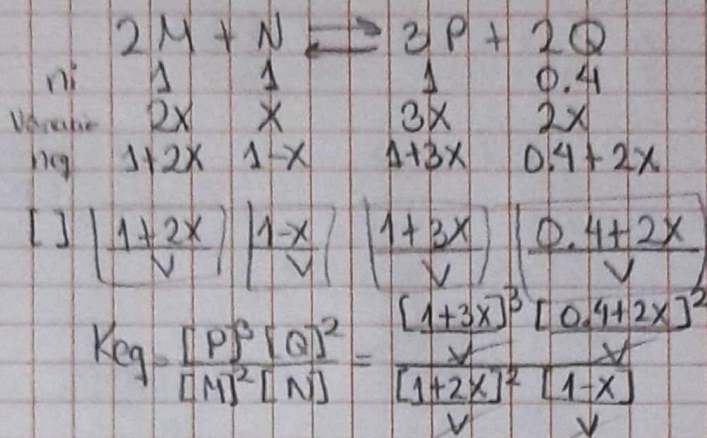 2M + N ⇌ 3P + 2Q
ni 1 1 1 0.4
2x x 3x 2x
neq 1+2x 1-x 1+3x 0.4+2x
[ ] (1+2x/V) (1-x/V) (1+3x/V) (0.4+2x/V)
Keq = [P]³ [Q]² / [M]² [N] = [1+3x/V]³ [0.4+2x/V]² / [1+2x/V]² [1-x/V]